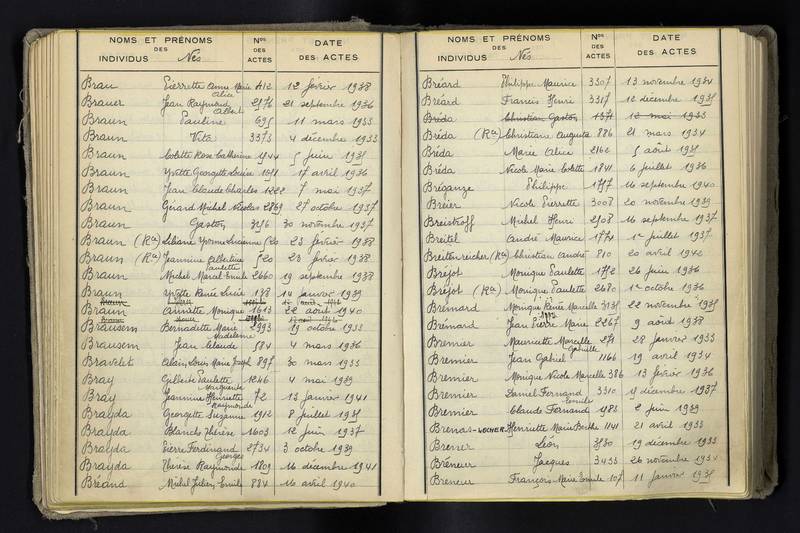 NOMS ET PRÉNOMS DES INDIVIDUS Nés Nos DES ACTES DATE DES ACTES
Brau Pierrette Anne Marie 412 12 février 1938
Alice
Brauer Jean Raymond 2576 21 septembre 1936
Albert
Braun Pauline 695 11 mars 1933
Braun Vita 3373 4 décembre 1933
Braun Colette Rose Catherine 1544 5 juin 1935
Braun Yvette Georgette Lucie 17 avril 1936
Braun Jean Claude Charles 1222 7 mai 1937
Braun Gérard Michel Nicolas 2869 27 octobre 1937
Braun Gaston 3256 30 novembre 1937
Braun (Ra) Liliane Yvonne Lucienne 520 23 février 1938
Braun (Ra) Jeannine Albertine 520 23 février 1938
Paulette
Braun Michel Marcel Emile 2660 19 septembre 1938
Braun Yvette Renée Lucie 138 14 janvier 1939
Braun Annette Monique 1613 22 août 1940
Brausem Bernadette Marie 2993 19 octobre 1933
Madeleine
Brausem Jean Claude 584 4 mars 1936
Bravelet Alain Louis Marie Joseph 897 30 mars 1933
Bray Gilberte Paulette 1246 4 mai 1939
Marguerite
Bray Jeannine Henriette 72 13 janvier 1941
Raymonde
Brayda Georgette Suzanne 1912 8 juillet 1935
Brayda Blanche Thérèse 1603 12 juin 1937
Brayda Pierre Ferdinand 2734 3 octobre 1939
Georges
Brayda Thérèse Raymonde 1809 16 décembre 1941
Bréand Michel Julien Emile 884 16 avril 1940
NOMS ET PRÉNOMS DES INDIVIDUS Nés Nos DES ACTES DATE DES ACTES
Bréard Philippe Maurice 3307 13 novembre 1934
Bréard Francis Henri 3317 12 décembre 1935
Bréda Christian Gaston 1371 12 mai 1933
Bréda (Ra) Christiane Augusta 886 21 mars 1934
Bréda Marie Alice 2162 5 août 1935
Bréda Nicole Marie Colette 1841 6 juillet 1936
Bréganze Philippe 1757 16 septembre 1940
Breier Nicole Pierrette 3008 20 novembre 1939
Breistroff Michel Henri 2508 16 septembre 1937
Breitel André Maurice 1774 1er juillet 1937
Breitenreicher (Ra) Christian André 810 20 avril 1942
Bréjot Monique Paulette 1752 26 juin 1936
Bréjot (Ra) Monique Paulette 2680 1er octobre 1936
Brémard Monique Renée Marcelle 3135 22 novembre 1935
Brémard Jean Pierre Marie 2267 9 août 1938
Bremier Mauricette Marcelle 271 28 janvier 1933
Gabrielle
Bremier Jean Gabriel 1166 19 avril 1934
Bremier Monique Nicole Marcelle 386 13 février 1936
Bremier Daniel Fernand 3310 9 décembre 1937
Emile
Bremier Claude Fernand 1583 2 juin 1939
Brenas-LECHER Henriette Marie Berthe 1141 21 avril 1933
Brener Léon 3530 19 décembre 1933
Bréneur Jacques 3433 26 novembre 1934
Breneur François Marie Emile 107 11 janvier 1935